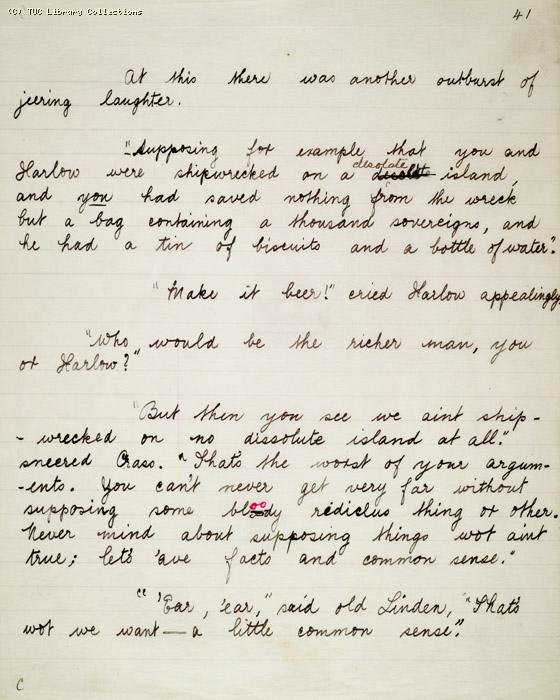 (C) TUC Library Collections
41
At this there was another outburst of
jeering laughter.
"Supposing for example that you and
Harlow were shipwrecked on a desolate island,
and you had saved nothing from the wreck
but a bag containing a thousand sovereigns, and
he had a tin of biscuits and a bottle of water".
"Make it beer!" cried Harlow appealingly
"Who would be the richer man, you
or Harlow?"
"But then you see we aint ship-
- wrecked on no dissolute island at all."
sneered Crass. "Thats the worst of your argum-
-ents. You can't never get very far without
supposing some bloody rediclus thing or other.
Never mind about supposing things wot aint
true; let's 'ave facts and common sense."
"'Ear, 'ear," said old Linden, "Thats
wot we want — a little common sense".
C